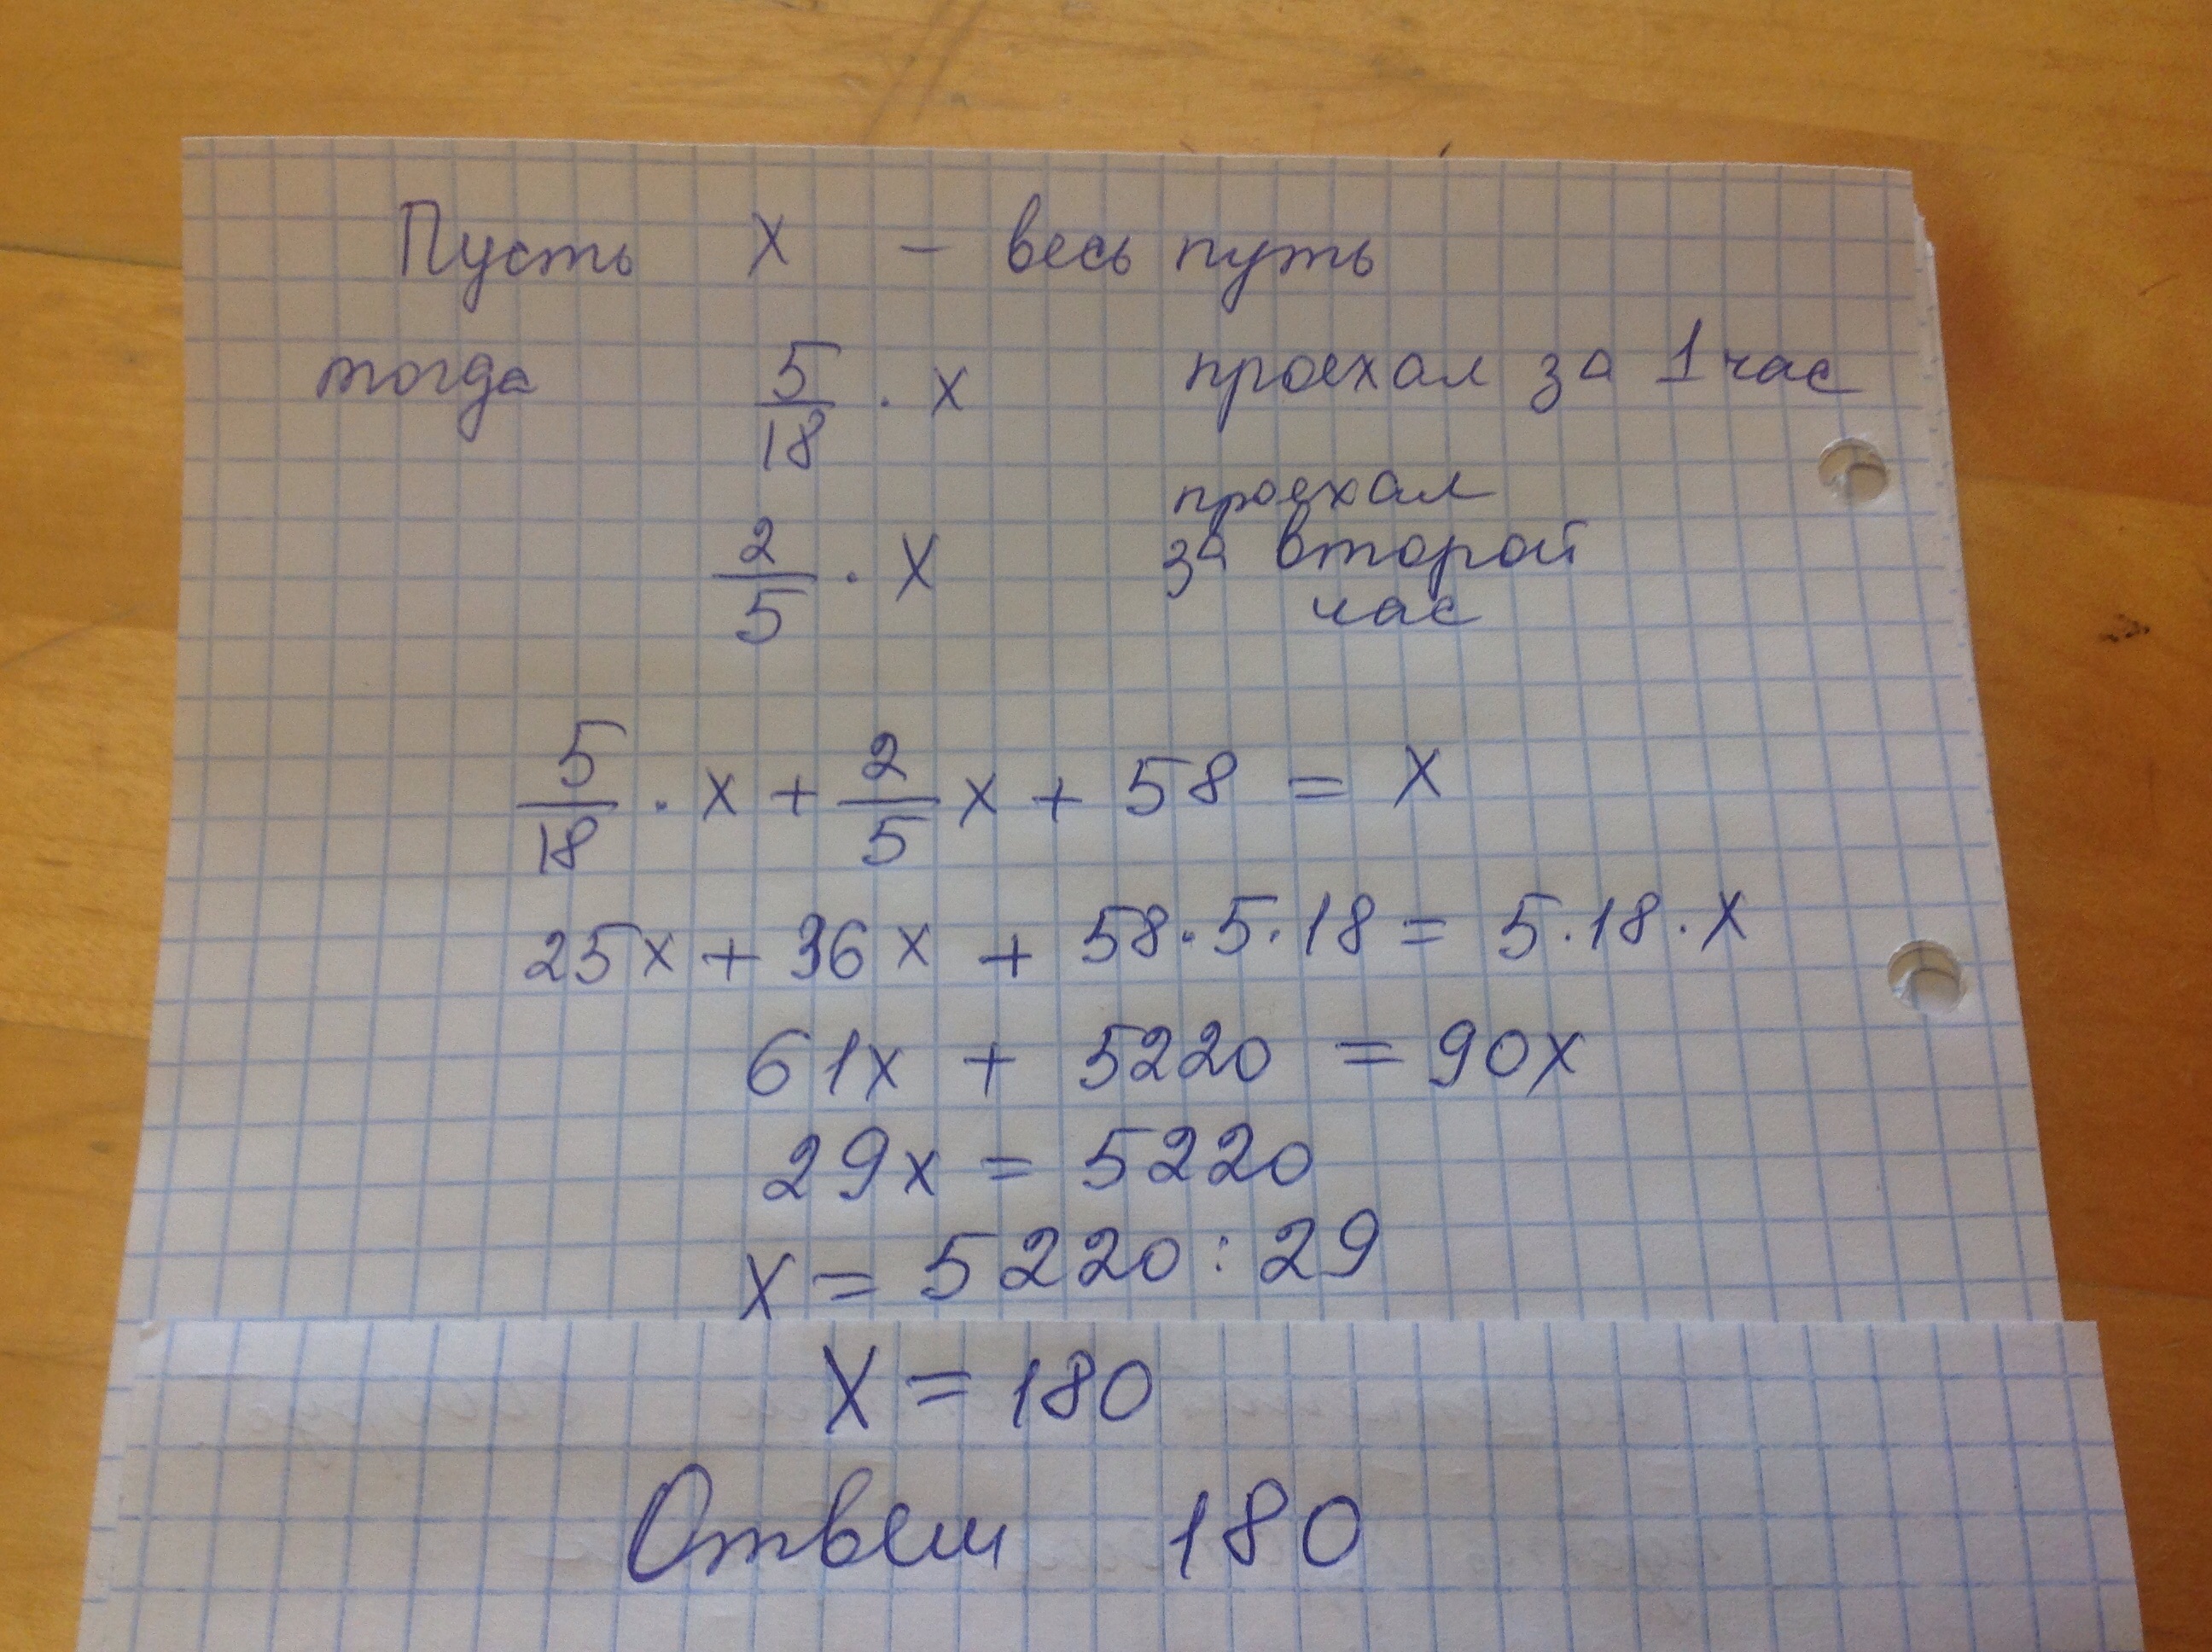 Пусть x – весь путь
тогда 5/18 · x проехал за 1 час
2/5 · x проехал за второй час
5/18 · x + 2/5 x + 58 = x
25x + 36x + 58·5·18 = 5·18·x
61x + 5220 = 90x
29x = 5220
x = 5220 : 29
x = 180
Ответ 180